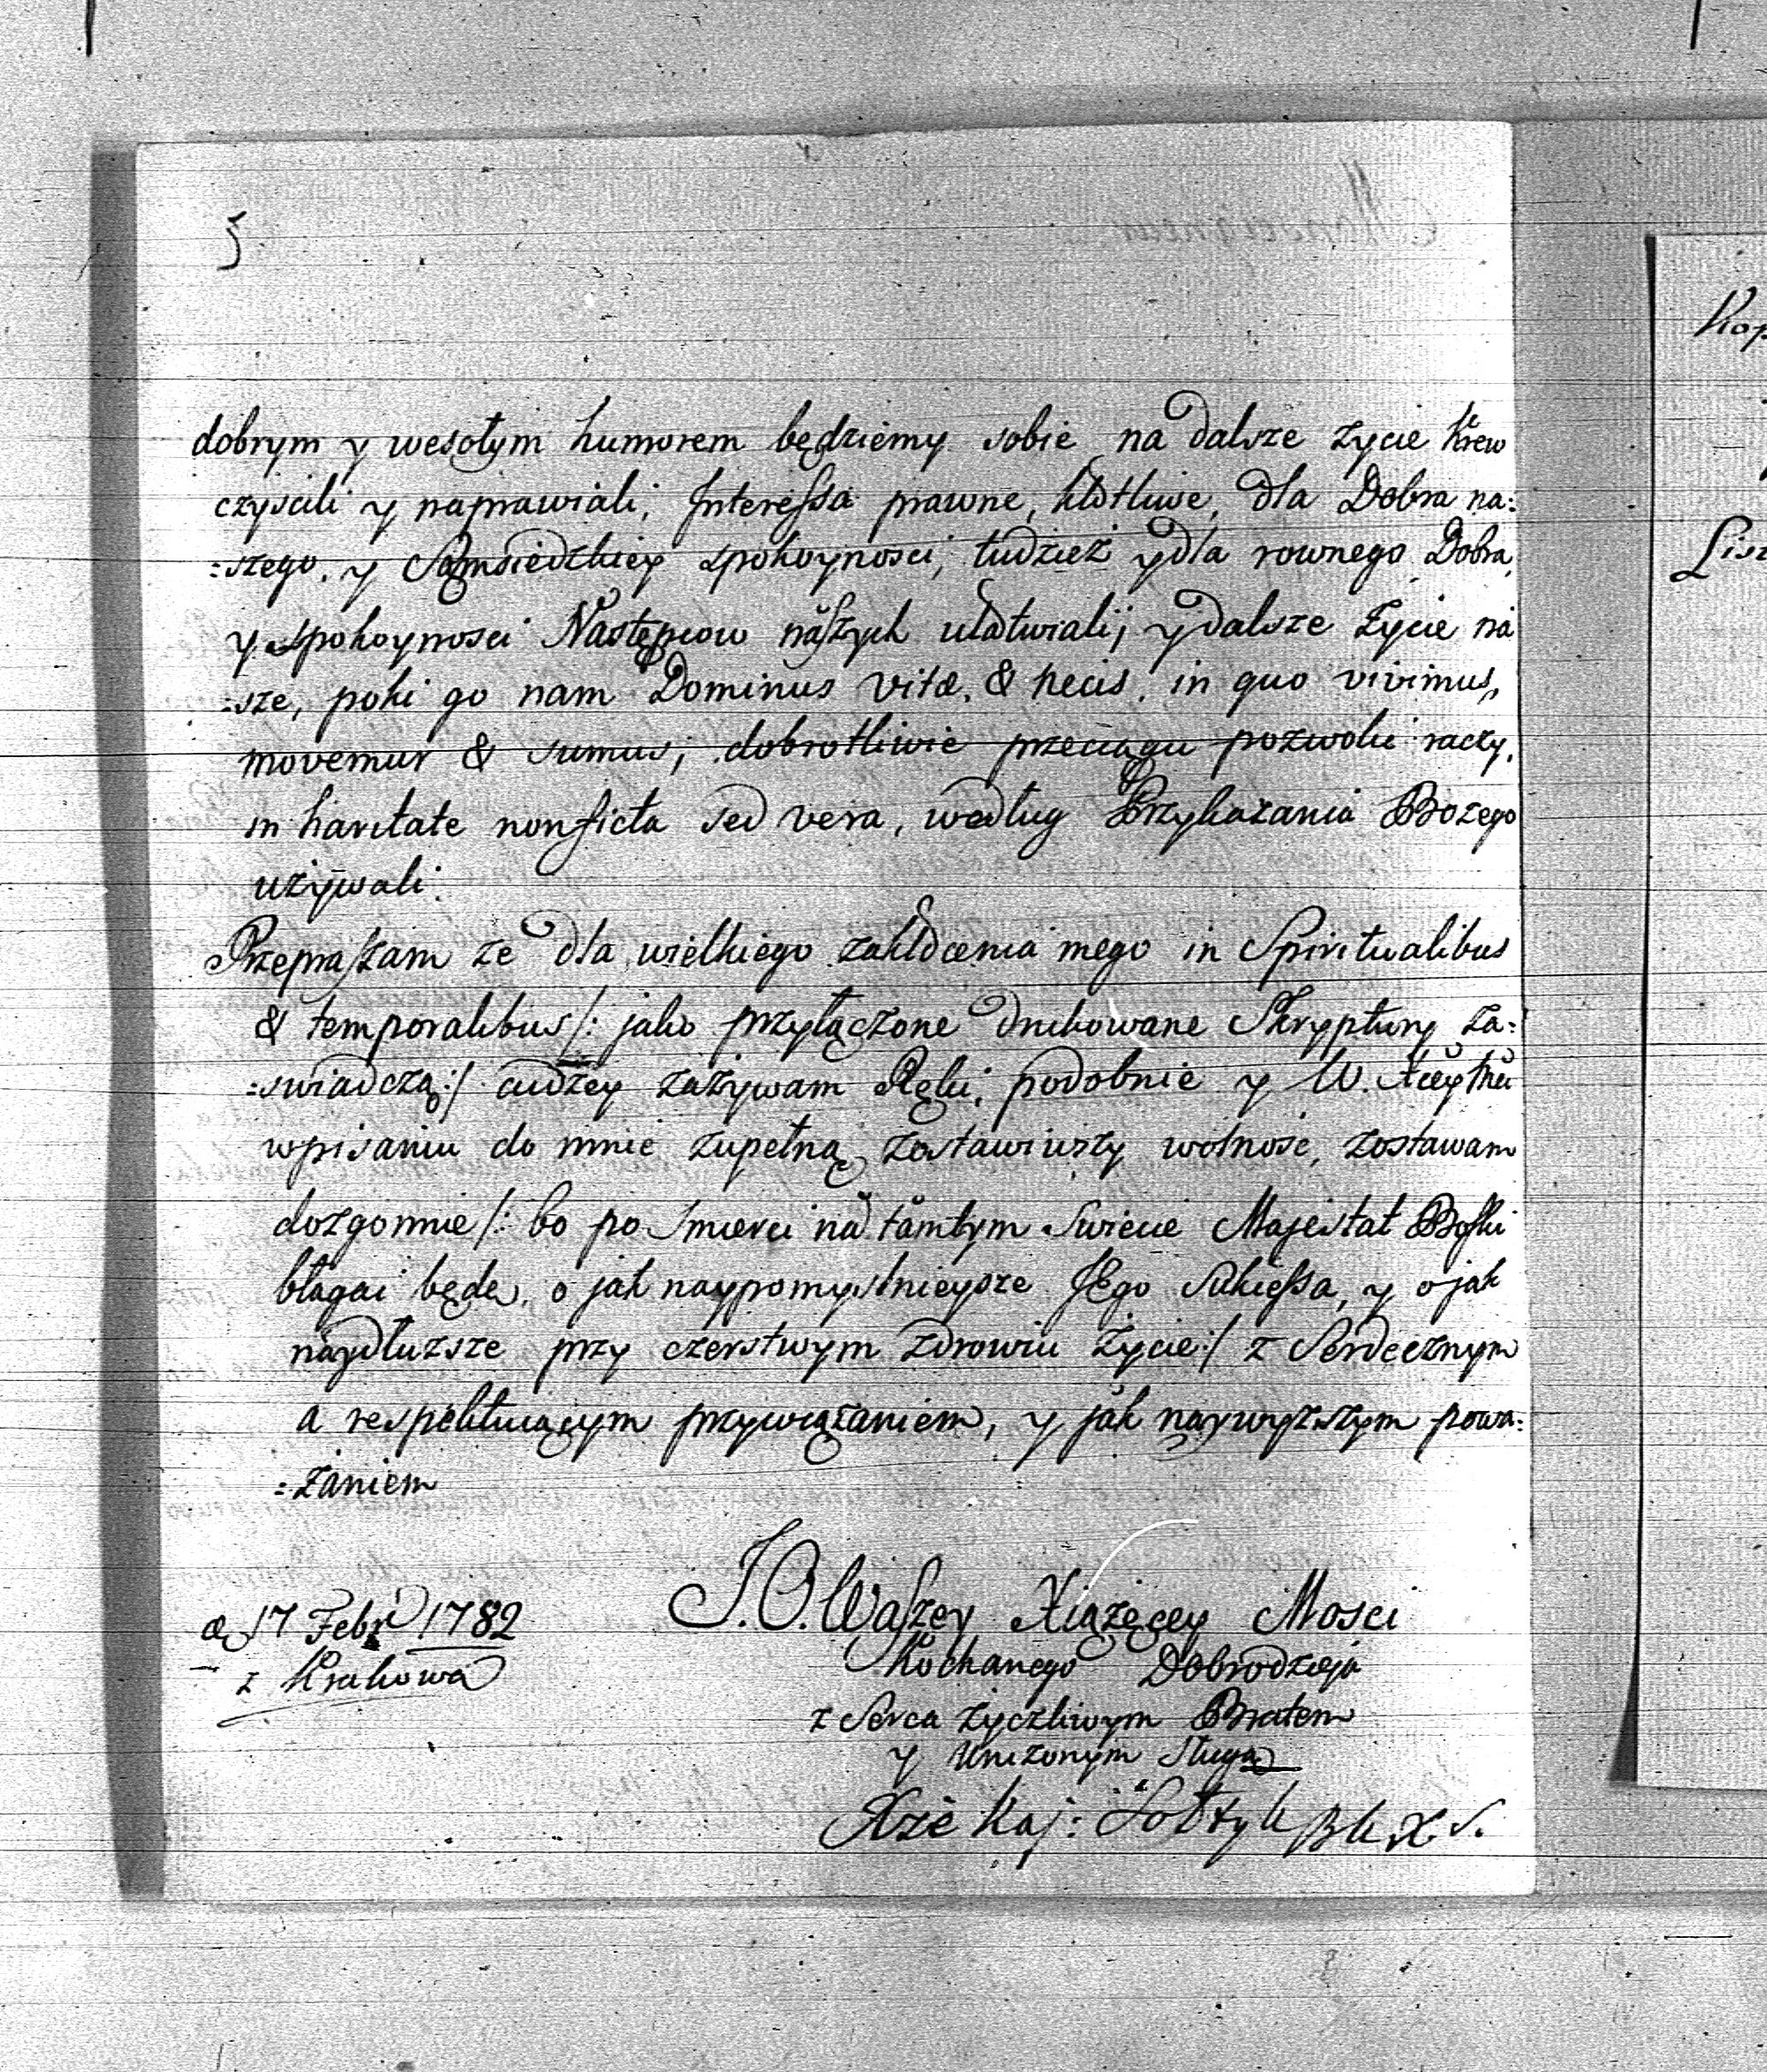 dobrym y wesołym humorem będziemy sobie na dalsze zycie krew
czyscili y naprawiali, Interessa prawne, kłotliwe, dla Dobra na:
:szego, y Sąmsiedzkiey spokoynosci, tudziez y dla rownego Dobra,
y spokoynosci Następcow naszych ułatwiali, y dalsze zycie na
:sze, poki go nam Dominus vitæ, & necis, in quo vivimus,
movemur & sumus, dobrotliwie przeciągu pozwolic raczy,
in haritate non ficta sed vera, według Przykazania Bozego
uzywali.
Przepraszam ze dla wielkiego zakłocenia mego in Spiritualibus
& temporalibus /: jako przyłączone drukowane Skryptury za:
:swiadczą :/ cudzey zazywam Ręki, podobnie y W. Xcey Mci
w pisaniu do mnie zupełną zostawiwszy wolnosc, zostawam
dozgonnie /: bo po Smierci na tamtym Swiecie Majestat Boski
błagac będę, o jak naypomyslnieysze JEgo Sukcessa, y o jak
naydłuzsze przy czerstwym zdrowiu zycie :/ z Serdecznym
a respektuiącym przywiązaniem, y jak naywyzszym powa:
:zaniem
J. O. Waszey Xiązęcey Mosci
Kochanego Dobrodzieja
z Serca zyczliwym Bratem
y Unizonym sługą
Xże Kaj: Sołtyk B K X S.
17 Febr 1782
z Krakowa
Kop
List